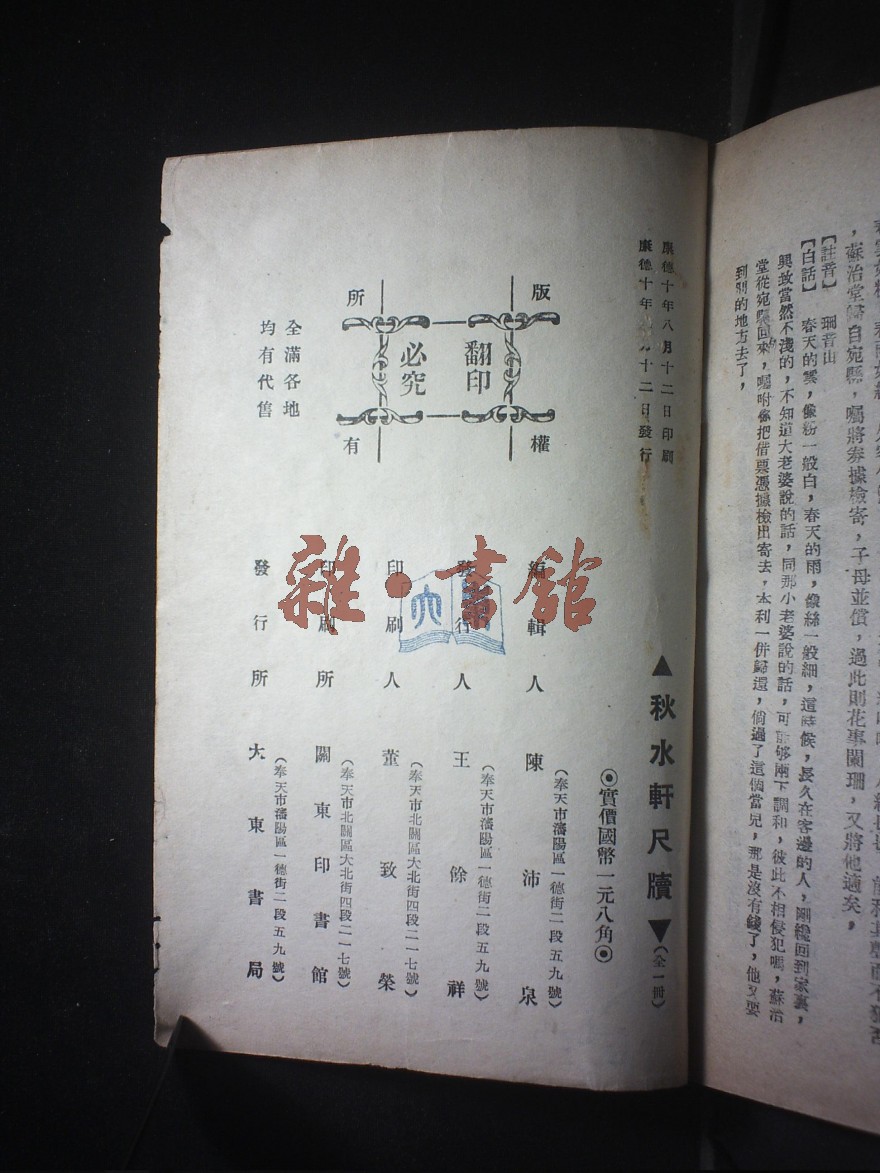 蘇治堂歸自宛縣，囑將券據檢寄，子母並償，過此則花事闌珊，又將他適矣，
【註音】　珊音山
【白話】　春天的雲，像粉一般白，春天的雨，像絲一般細，這時候，長久在客邊的人，剛纔回到家裏，
興致當然不淺的，不知道大老婆說的話，同那小老婆說的話，可能够兩下調和，彼此不相侵犯嗎，蘇治
堂從宛縣回來，囑咐你把借票憑據檢出寄去，本利一併歸還，倘過了這個當兒，那是沒有錢了，他又要
到別的地方去了，
康德十年八月十二日印刷
康德十年 月十二日發行
▲秋水軒尺牘▼（全一冊）
◉實價國幣一元八角◉
版權所有
翻印
必究
全滿各地
均有代售
（奉天市瀋陽區一德街二段五九號）
編輯人 陳沛泉
（奉天市瀋陽區一德街二段五九號）
發行人 王餘祥
（奉天市北關區大北街四段二一七號）
印刷人 董致榮
（奉天市北關區大北街四段二一七號）
印刷所 關東印書館
（奉天市瀋陽區一德街二段五九號）
發行所 大東書局
雜·書館